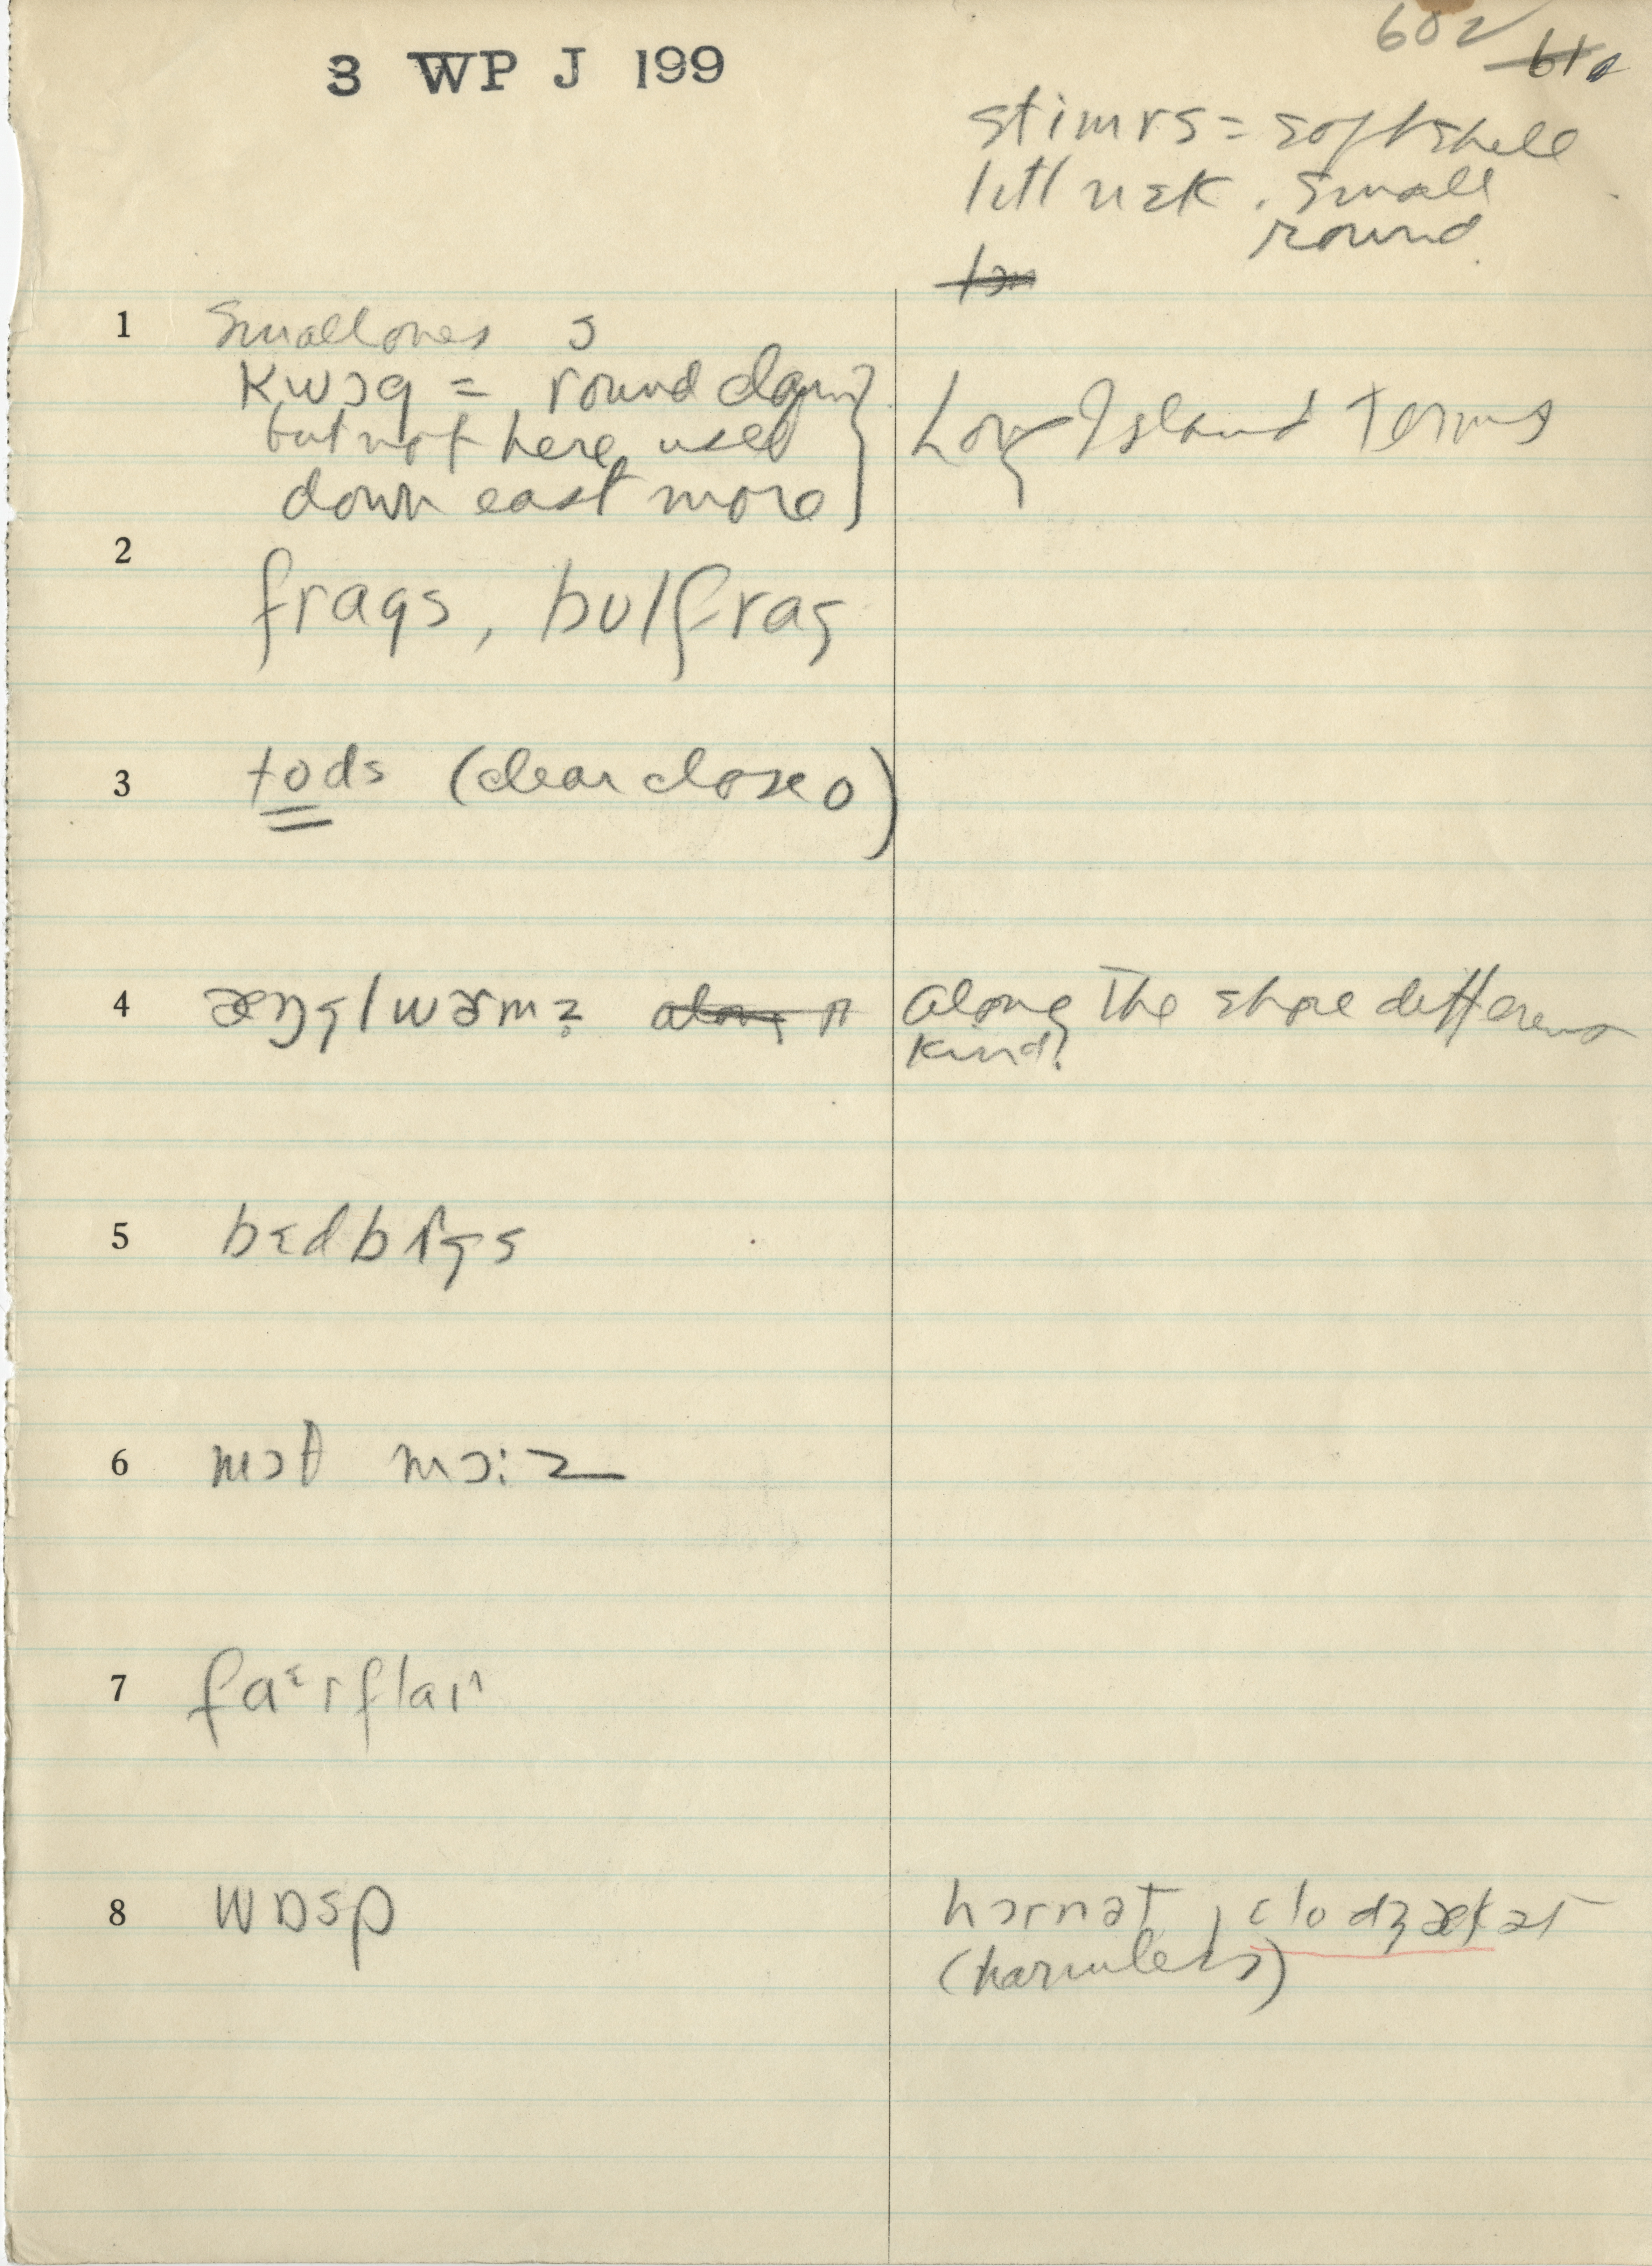 3 WP J 199
602 ✓
stimrs = softshell
lɪtl nɛk . small
round
1 Small ones
kwɔg = round clam
but not here, used
down east more
Long Island terms
2 frags, bulfrag
3 tods (clear close o)
4 æŋglwɚmz along
along the shore different
kind?
5 bɛdbʌgs
6 mɔθ mɔ:z
7 faᵋrflaɪ
8 wɒsp
hɔrnət, clodʒækət
(harmless)